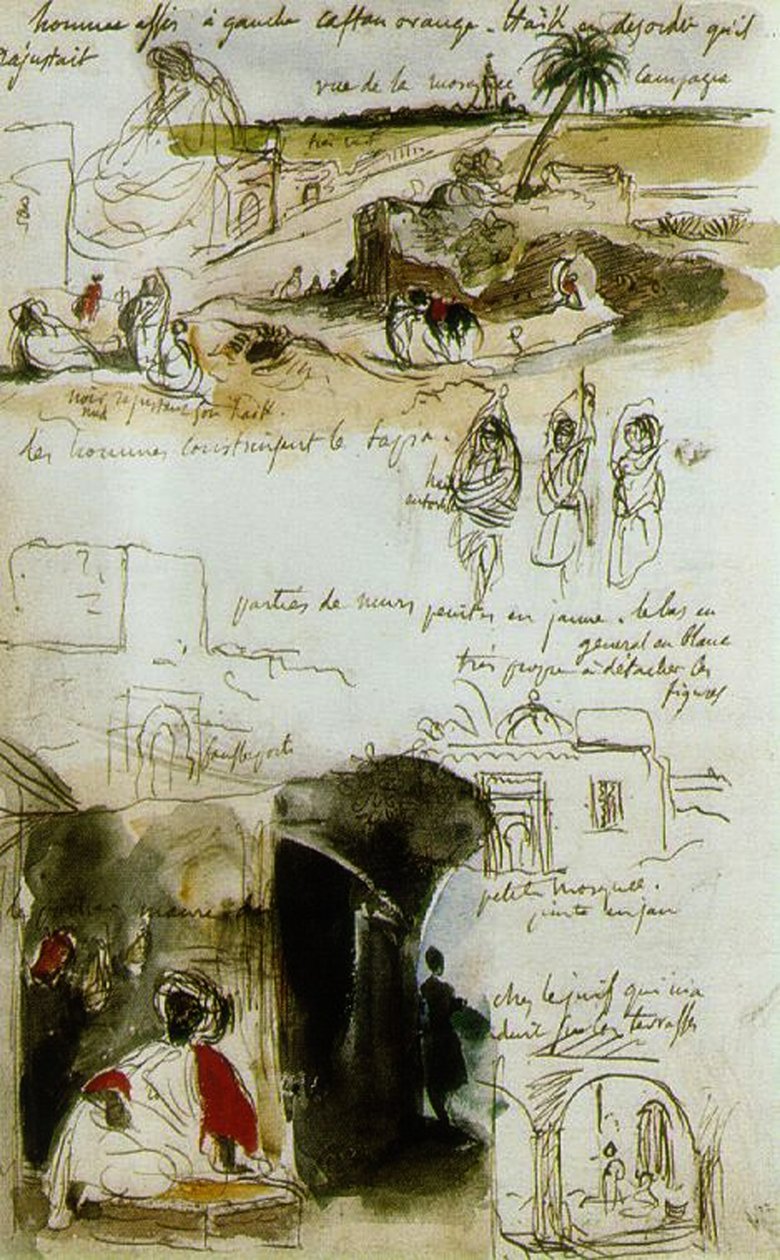 hommes assis à gauche caftan orange. Haïk en désordre qu'il
rajustait
vue de la mosquée
Campagne
très vert
noir rajustant son haïk.
nud
les hommes construisant le
haïk
entortillé
parties de murs peintes en jaune. le bas en
general en blanc
très propre à détacher les
figures
petite mosquée.
peinte en jaune
le portier maure de
chez le juif qui m'a
duit sur les terrasses